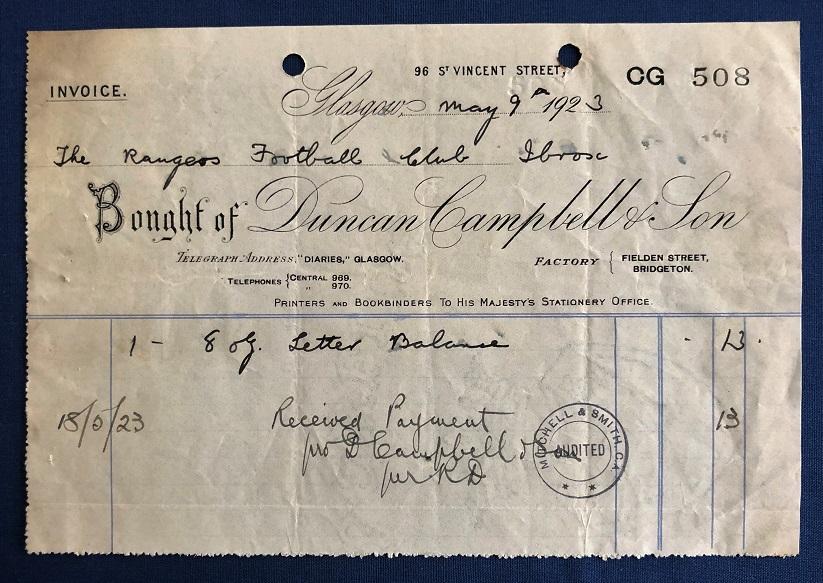 96 ST VINCENT STREET,
CG 508
INVOICE.
Glasgow, May 9th 1923
The Rangers Football Club Ibrox
Bought of Duncan Campbell & Son
TELEGRAPH ADDRESS, "DIARIES," GLASGOW.
FACTORY { FIELDEN STREET, BRIDGETON.
TELEPHONES { CENTRAL 969.
" 970.
PRINTERS AND BOOKBINDERS TO HIS MAJESTY'S STATIONERY OFFICE.
1 - 8 oz. Letter Balance - 13.
18/5/23 Received Payment 13
pro D Campbell & Son
per R D
MITCHELL & SMITH. C.A.
AUDITED